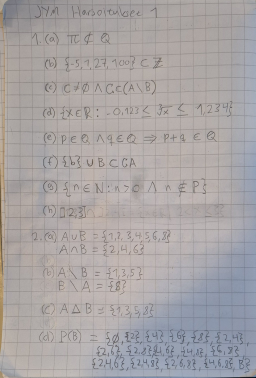 JYM Harjoitukset 1
1. (a) π ∉ Q
(b) {-5, 1, 27, 100} ⊂ Z
(c) C ≠ ∅ ∧ C ⊂ (A \ B)
(d) {x ∈ R : -0,122 ≤ ∛x ≤ 1,234}
(e) p ∈ Q ∧ q ∈ Q ⇒ p+q ∈ Q
(f) {b} ∪ B ⊂ A
(g) {n ∈ N : n > c ∧ n ∉ P}
(h)
2. (a) A∪B = {1,2,3,4,5,6,8}
A∩B = {2,4,6}
(b) A \ B = {1,3,5}
B \ A = {8}
(c) A Δ B = {1,3,5,8}
(d) P(B) = {∅, {2}, {4}, {6}, {8}, {2,4},
{2,6}, {2,8}, {4,6}, {4,8}, {6,8},
{2,4,6}, {2,4,8}, {2,6,8}, {4,6,8}, B}